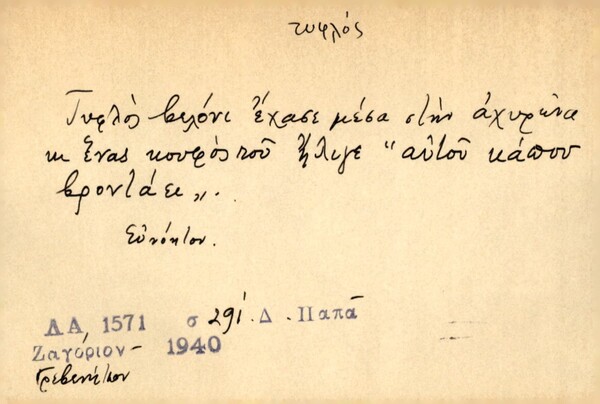 τυφλός
Τυφλὸς βελόνι ἔχασε μέσα στὴν ἀχυρῶνα
κι ἕνας κουφὸς τοῦ ἔλιγε "αὐτοῦ κάπου
βροντάει".
Εὐνόητον.
ΛΑ, 1571 σ 291. Δ. Παπᾶ
Ζαγόριον - 1940
Γρεβενήτιον